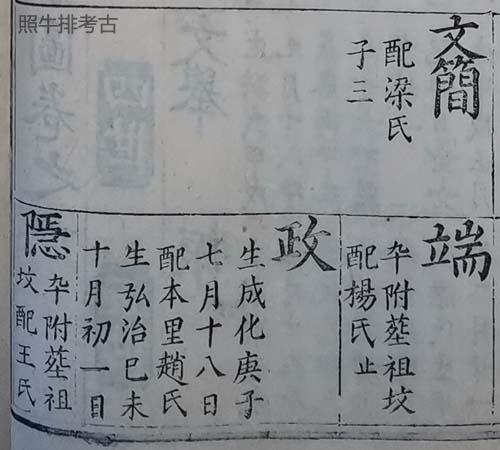 照牛排考古
文簡
配梁氏
子三
端
卒附塟祖坟
配楊氏止
政
生成化庚子
七月十八日
配本里趙氏
生弘治巳未
十月初一日
隱
卒附塟祖
坟配王氏